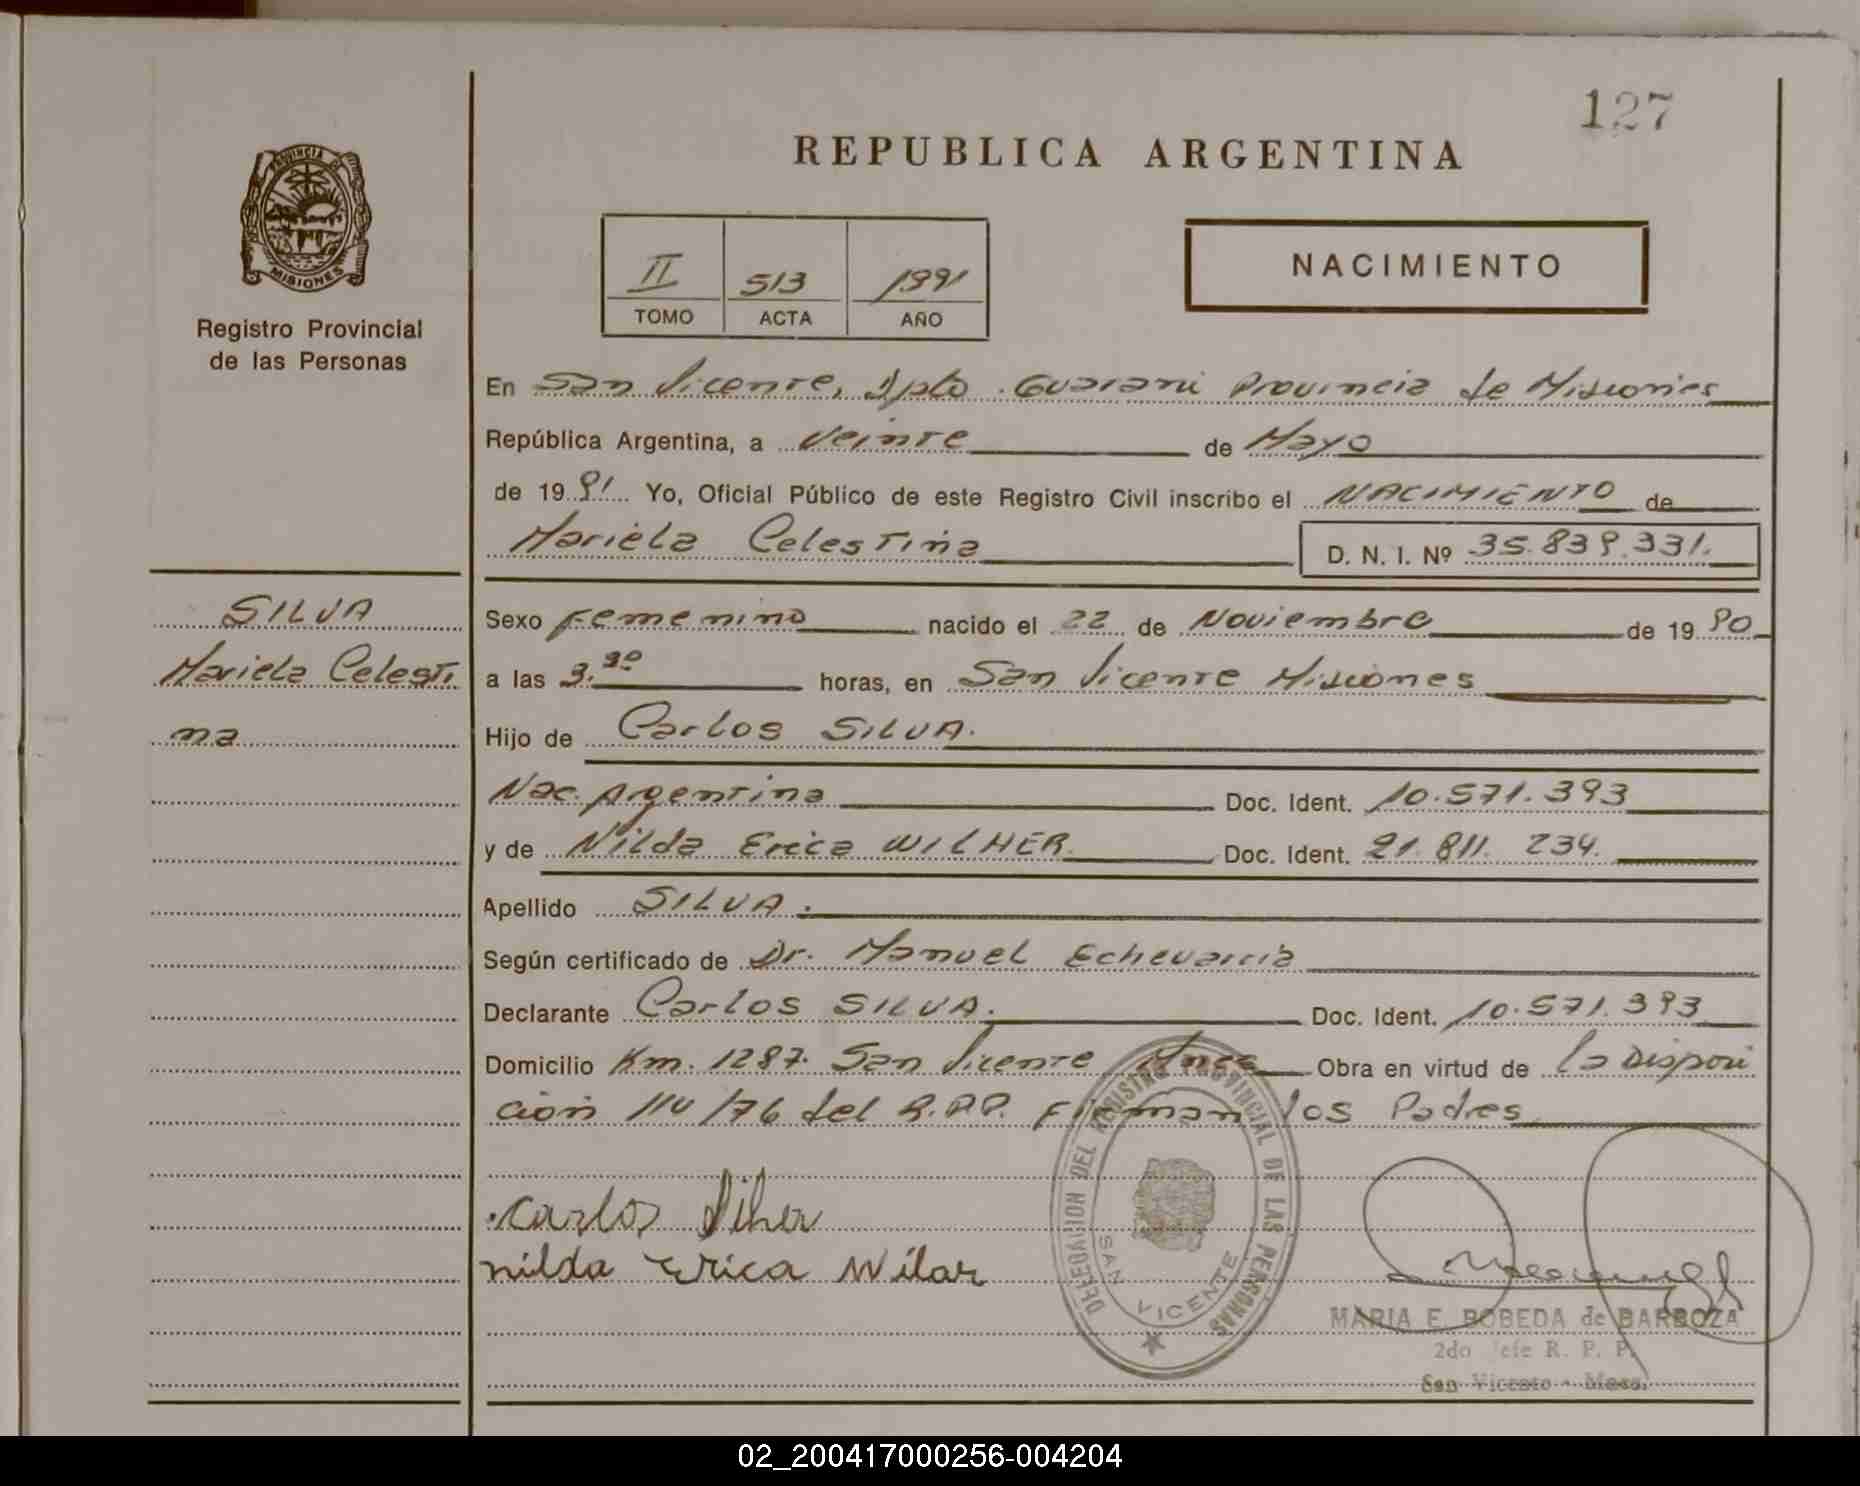 127
REPUBLICA ARGENTINA
PROVINCIA DE
MISIONES
Registro Provincial
de las Personas
II 513 1991
TOMO ACTA AÑO
NACIMIENTO
En San Vicente, Dpto. Guarani Provincia de Misiones
República Argentina, a Veinte de Mayo
de 1991 Yo, Oficial Público de este Registro Civil inscribo el NACIMIENTO de
Mariela Celestina D. N. I. Nº 35.839.331.
SILVA
Mariela Celesti
na
Sexo Femenino nacido el 22 de Noviembre de 1990
a las 3.30 horas, en San Vicente Misiones
Hijo de Carlos SILVA.
Nac. Argentina Doc. Ident. 10.571.393
y de Nilda Erica WILHER Doc. Ident. 21.811.234.
Apellido SILVA.
Según certificado de Dr. Manuel Echevarria
Declarante Carlos SILVA. Doc. Ident. 10.571.393
Domicilio Km. 1287. San Vicente Mnes Obra en virtud de la Disposi
cion 110/76 del R.P.P. Firman los Padres
Carlos Silva
nilda Erica Wilar
DELEGACION DEL REGISTRO PROVINCIAL DE LAS PERSONAS
SAN VICENTE
MARIA E. BOBEDA de BARBOZA
2do Jefe R. P. P.
San Vicente - Mnes.
02_200417000256-004204